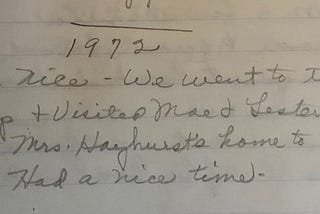 1972
nice - We went to
& Visited Mae & Lester
Mrs. Hayhurst's home to
Had a nice time -